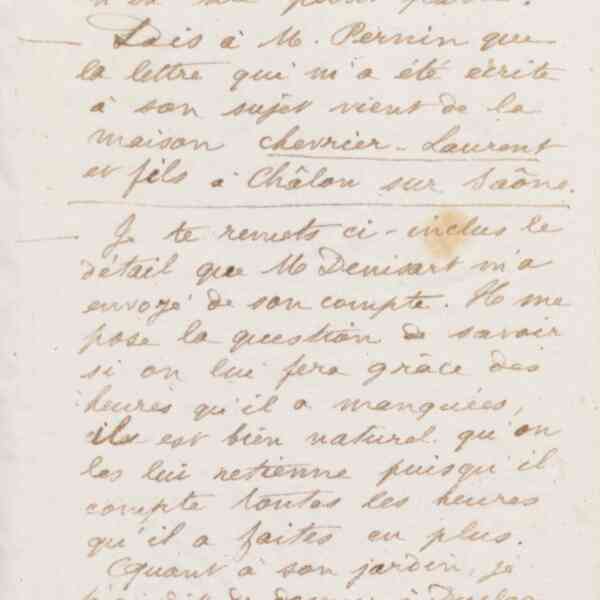 — Dais à M. Pernin que
la lettre qui m'a été écrite
à son sujet vient de la
maison chevrier - Laurent
et fils à Châlon sur Saône.
— Je te remets ci-inclus le
détail que M Denisart m'a
envoyé de son compte. Il me
pose la question de savoir
si on lui fera grâce des
heures qu'il a manquées,
ils est bien naturel qu'on
les lui retienne puisqu'il
compte toutes les heures
qu'il a faites en plus.
Quant à son jardin, je